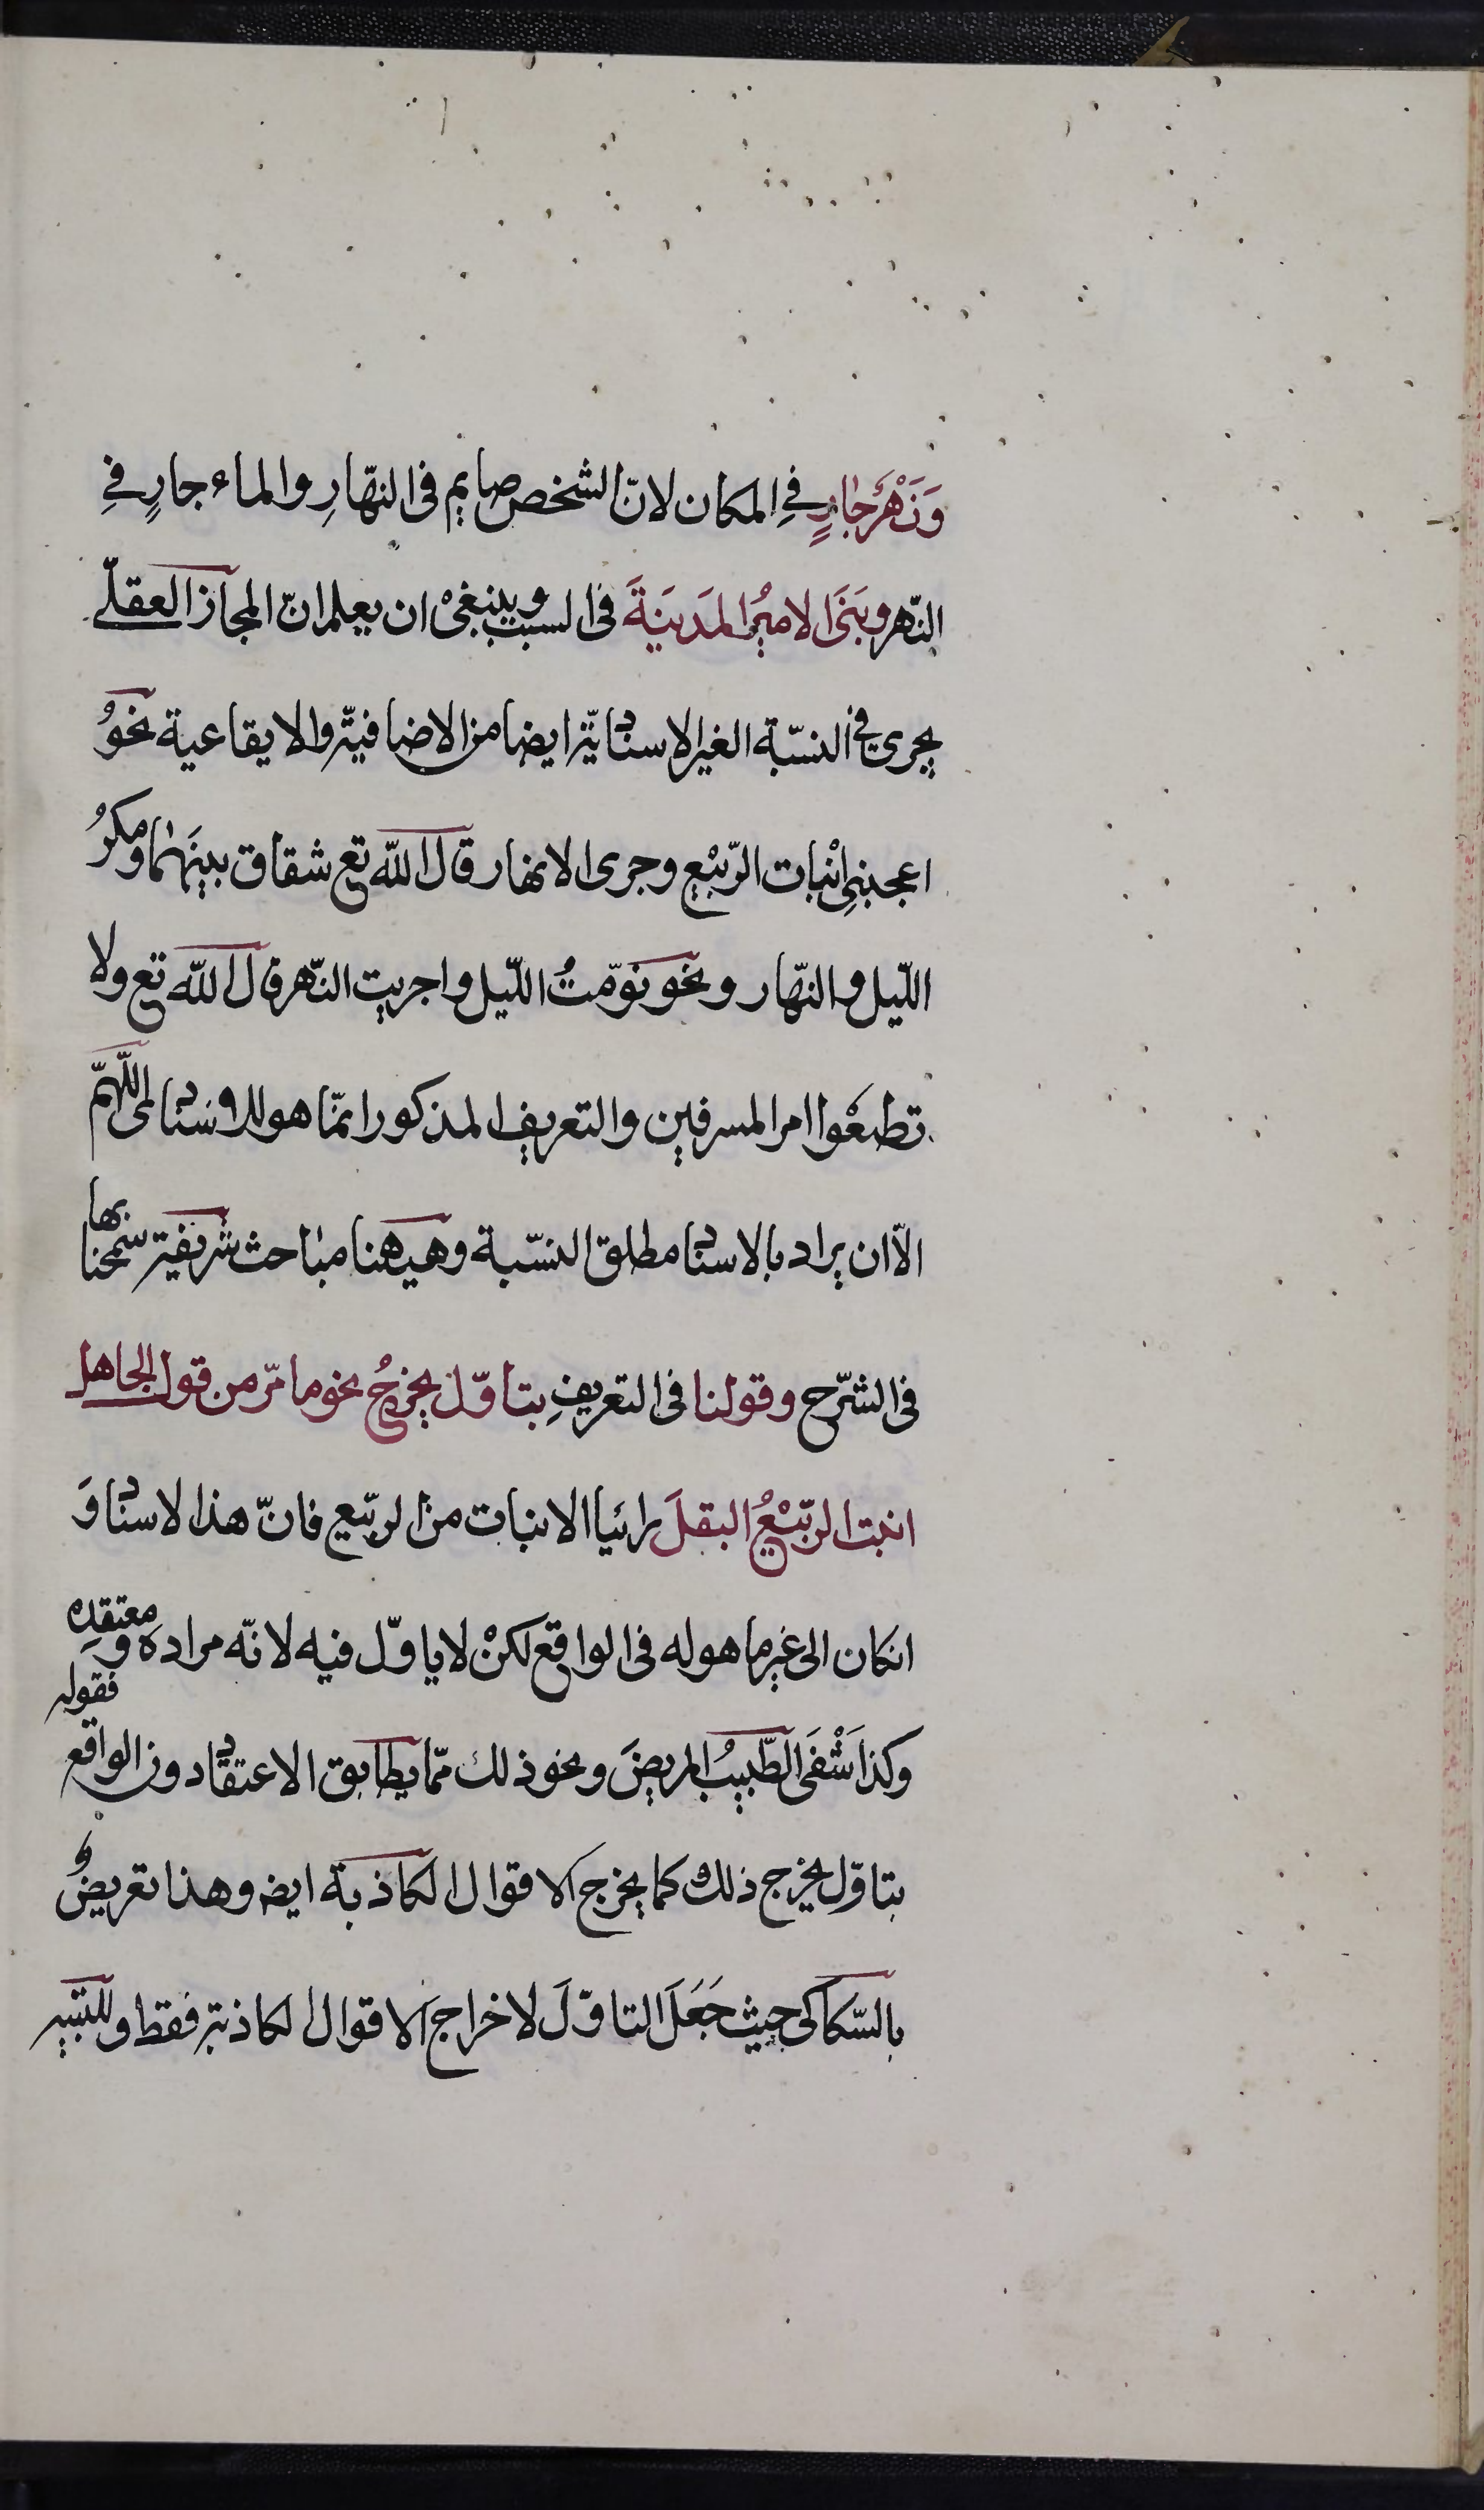 وَنَهْرٌ جارٍ فی المكان لانّ الشخص صايم فی النهّارِ والماء جارٍ فی
النّهر وبَنَی الامیُر المَدینَةَ فی السبب وینبغیْ ان یعلم انّ المجاز العقلّے
یجری فی النسّبة الغیر الاسنادیّة ایضا من الاضافیّة والایقاعیة نحوُ
اعجبنیِ انْبات الرّبیْع وجری الانهار قال اللّه تع شقاق بینَهما ومكرُ
اللّیل والنهّار ونحو نوّمتُ اللّیل واجریت النّهر قال اللّه تع ولا
تطیعْوا امر المسرفین والتعریف المذكور انمّا هو للاسنادی اللّهمّ
الاّ ان یراد بالاسناد مطلق النسّبة وهیهنا مباحث شریفة سمحنا بها
فی الشّرح وقولنا فی التعریفِ بتاوّل یخرجُ نحو ما مرّ من قول الجاهل
انبت الربّیْعُ البقلَ رائیا الانبات من الربّیع فانّ هذا الاسناد وَ
انكان الی غیر ما هو له فی الواقع لكنْ لا یاوّل فیه لانّه مراده ومعتقده
وكذا شَفَی الطّبیبُ المریضَ ونحو ذلك ممّا یطابق الاعتقاد دون الواقع فقوله
بتاوّل یخرج ذلك كما یخرج الاقوال الكاذبة ایضه وهذا تعریضٌ
بالسّكاكی حیث جَعَلَ التاوّلَ لاخراج الاقوال الكاذبة فقط وللتنبیه